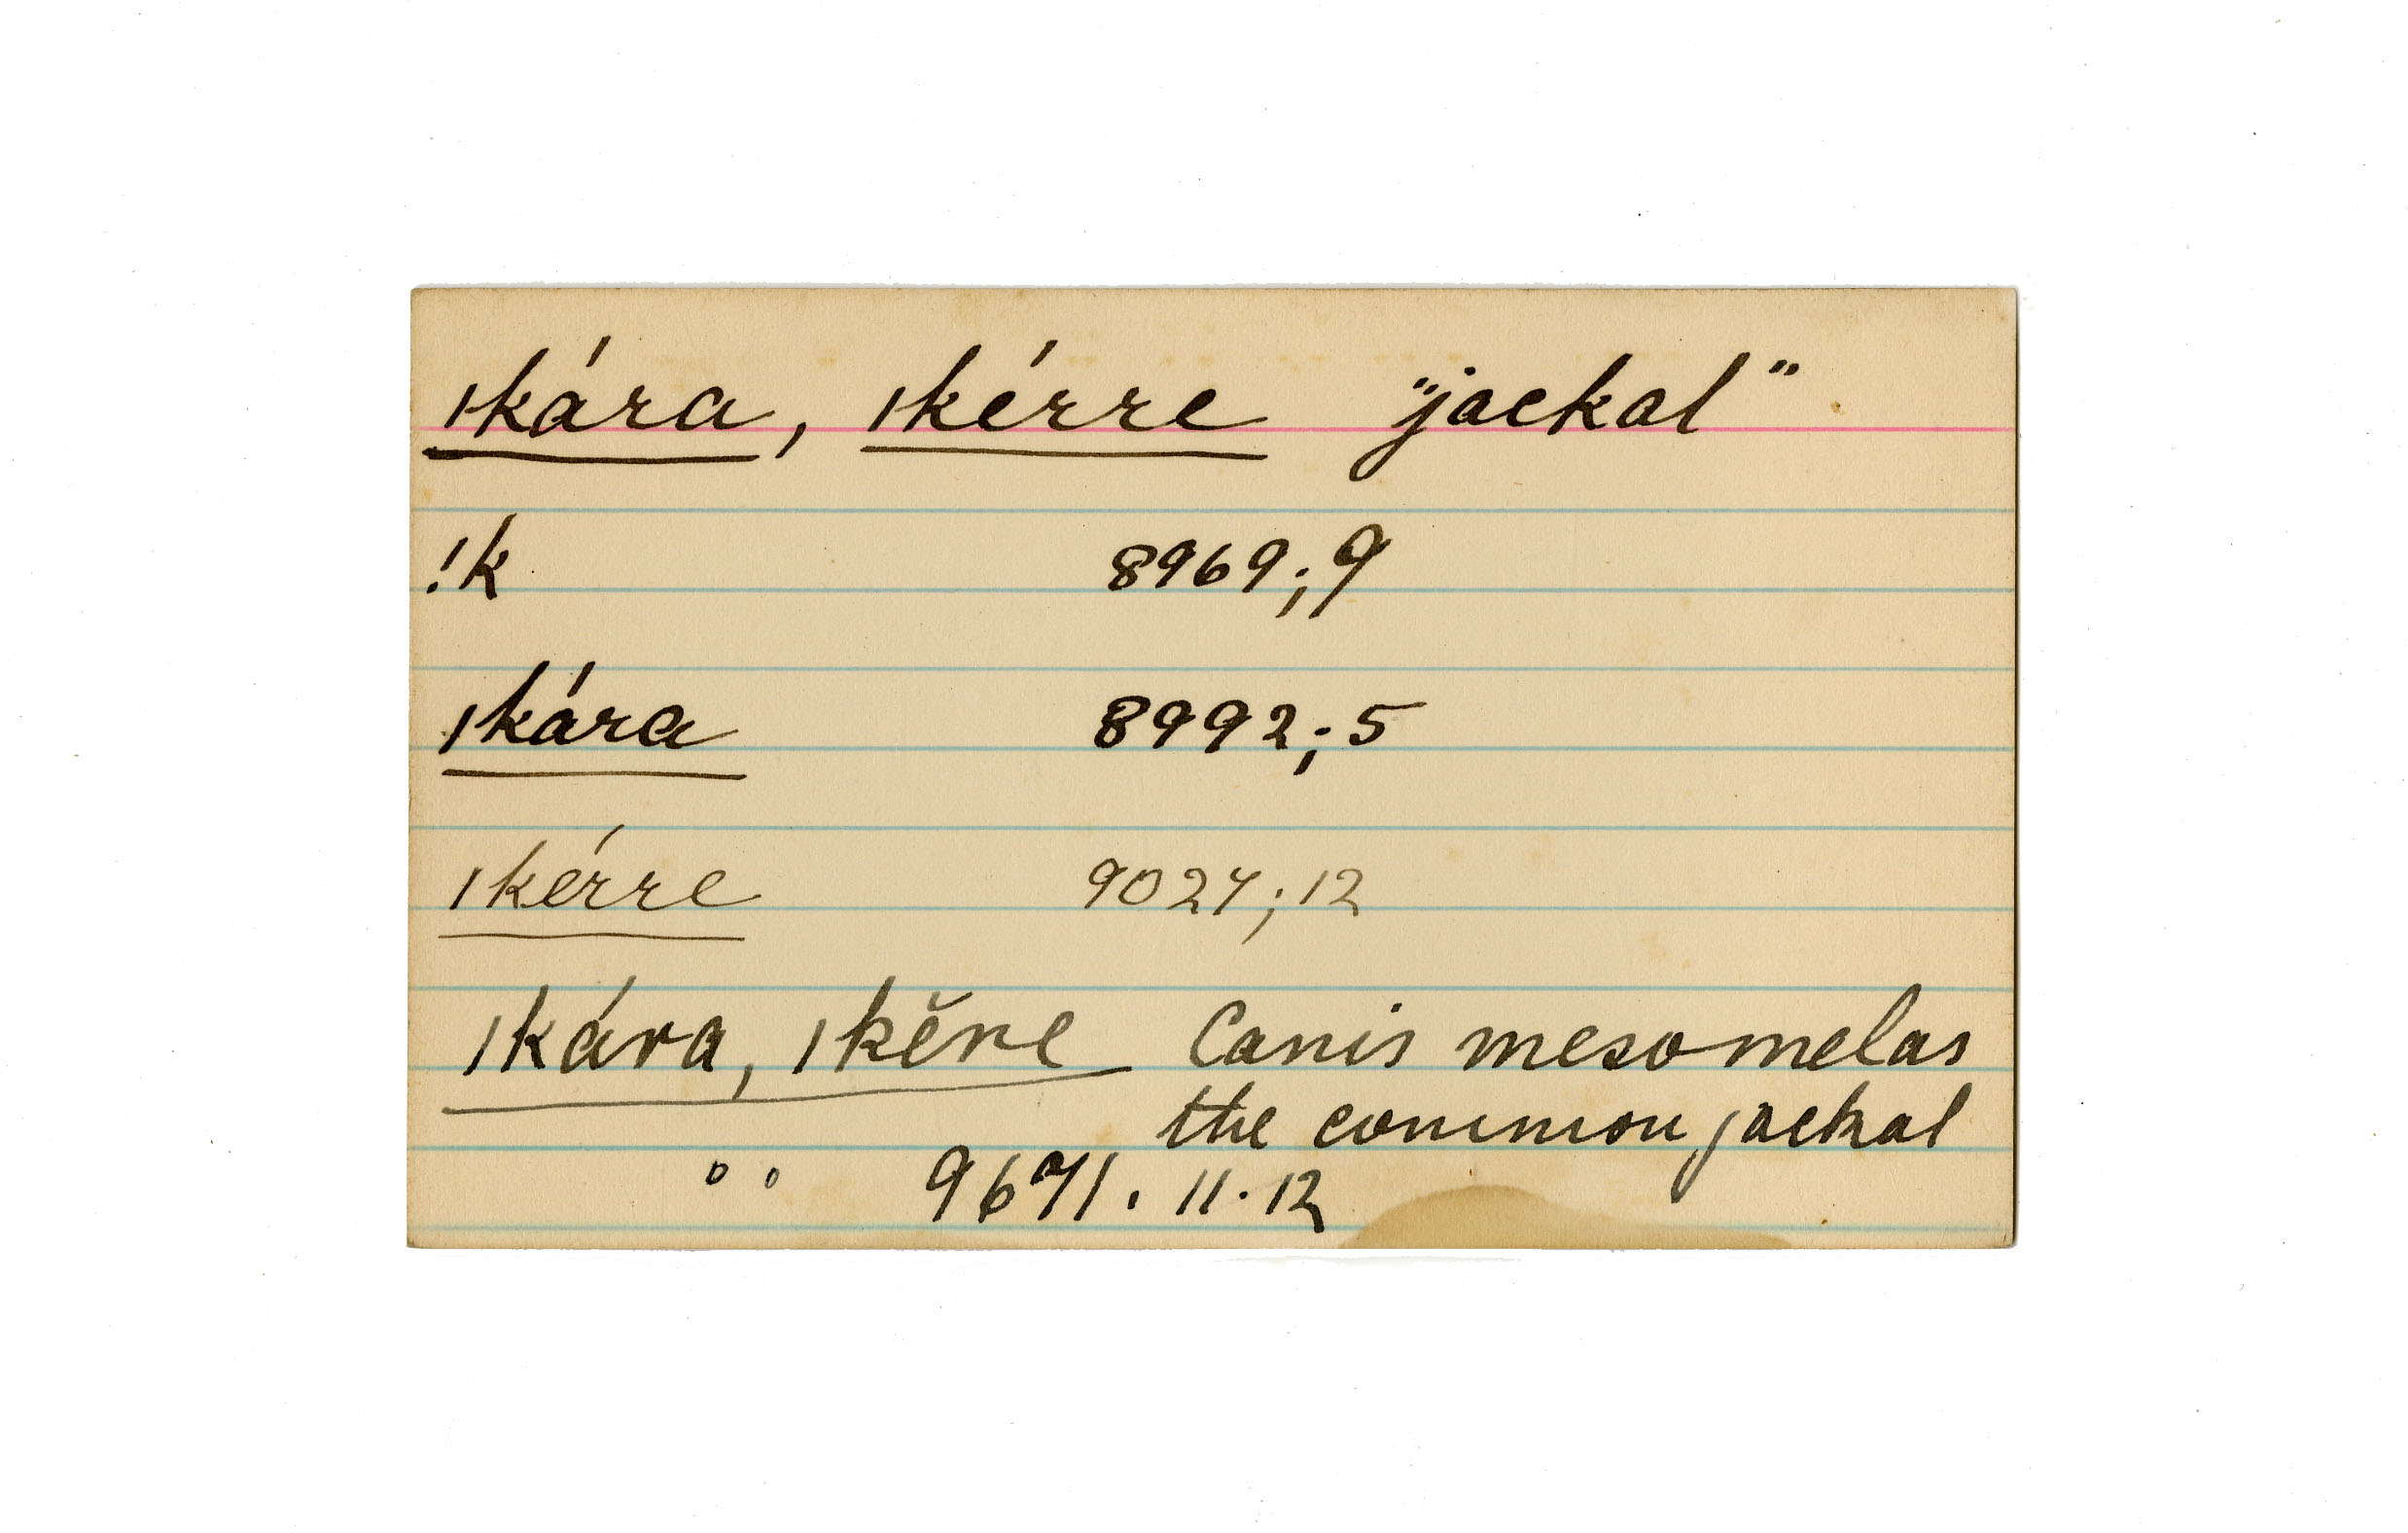 ǀkára, ǀkérre "jackal"
!k 8969; 9
ǀkára 8992; 5
ǀkérre 9027; 12
ǀkára, ǀkĕre Canis mesomelas
the common jackal
" 9671. 11. 12